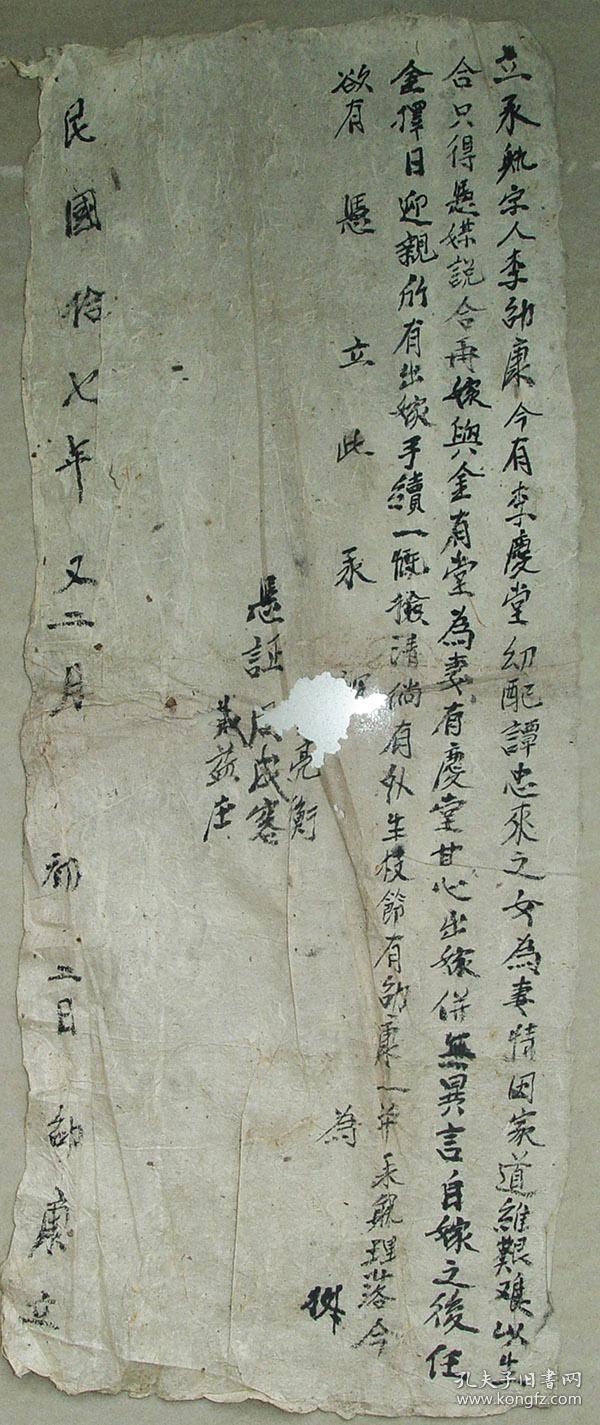 立承執字人李劭康今有李慶堂幼配譚忠來之女為妻情因家道維艱難以生
合只得憑媒說合再嫁與金有堂為妻有慶堂甘心出嫁併無異言自嫁之後任
金擇日迎親所有出嫁手續一慨撿清倘有外生枝節有劭康一并承執理落今
欲有憑立此承為
亮衡
憑証
益庄
民國拾七年又二月初二日劭康立
孔夫子旧书网
kongfz.com